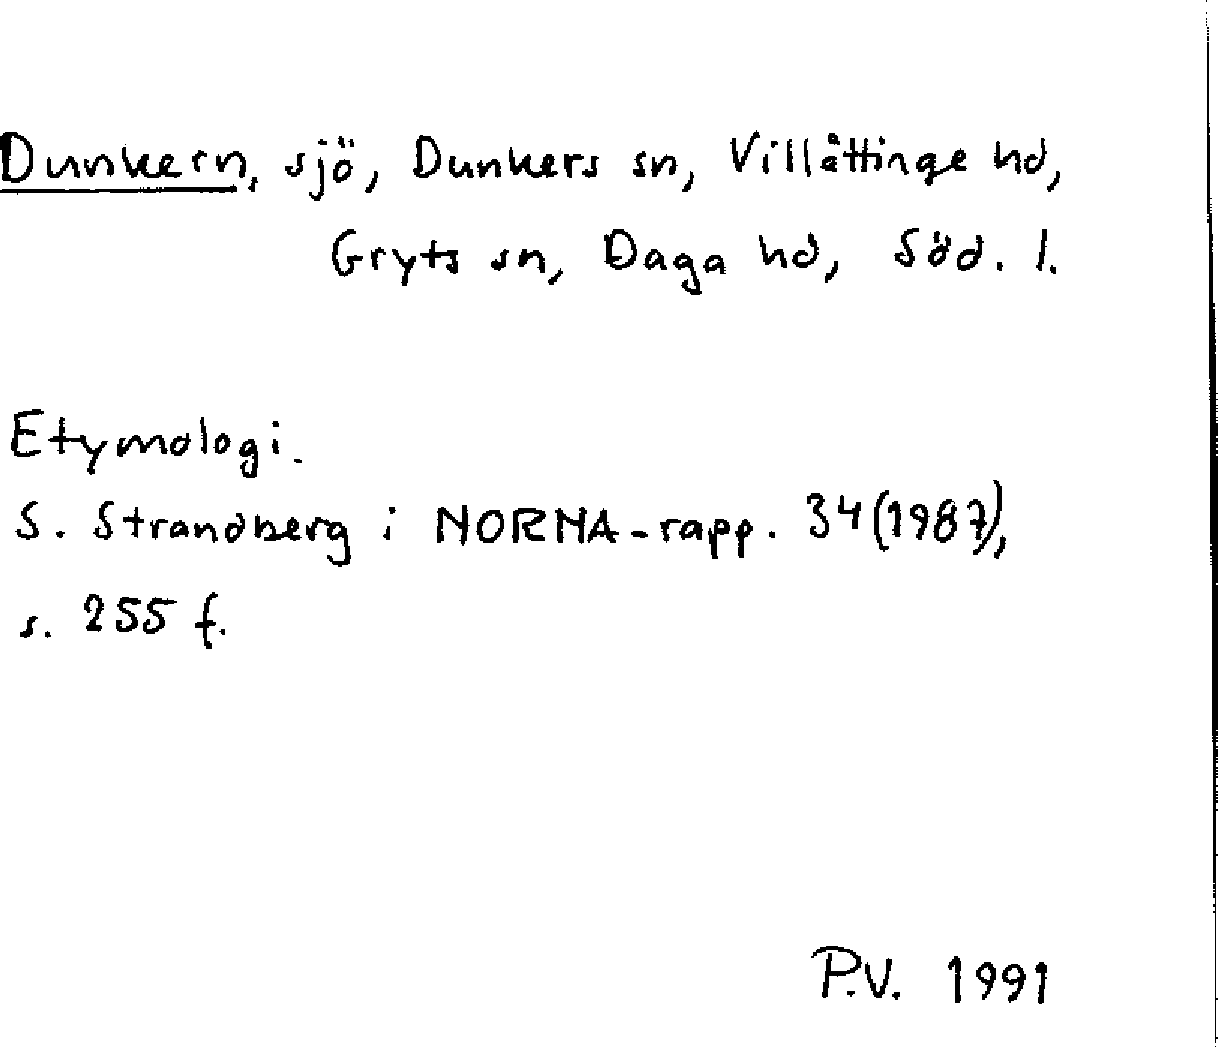 Dunkern, sjö, Dunkers sn, Villåttinge hd,
Gryts sn, Daga hd, Söd. l.
Etymologi.
S. Strandberg i NORNA-rapp. 34 (1987),
s. 255 f.
P.V. 1991